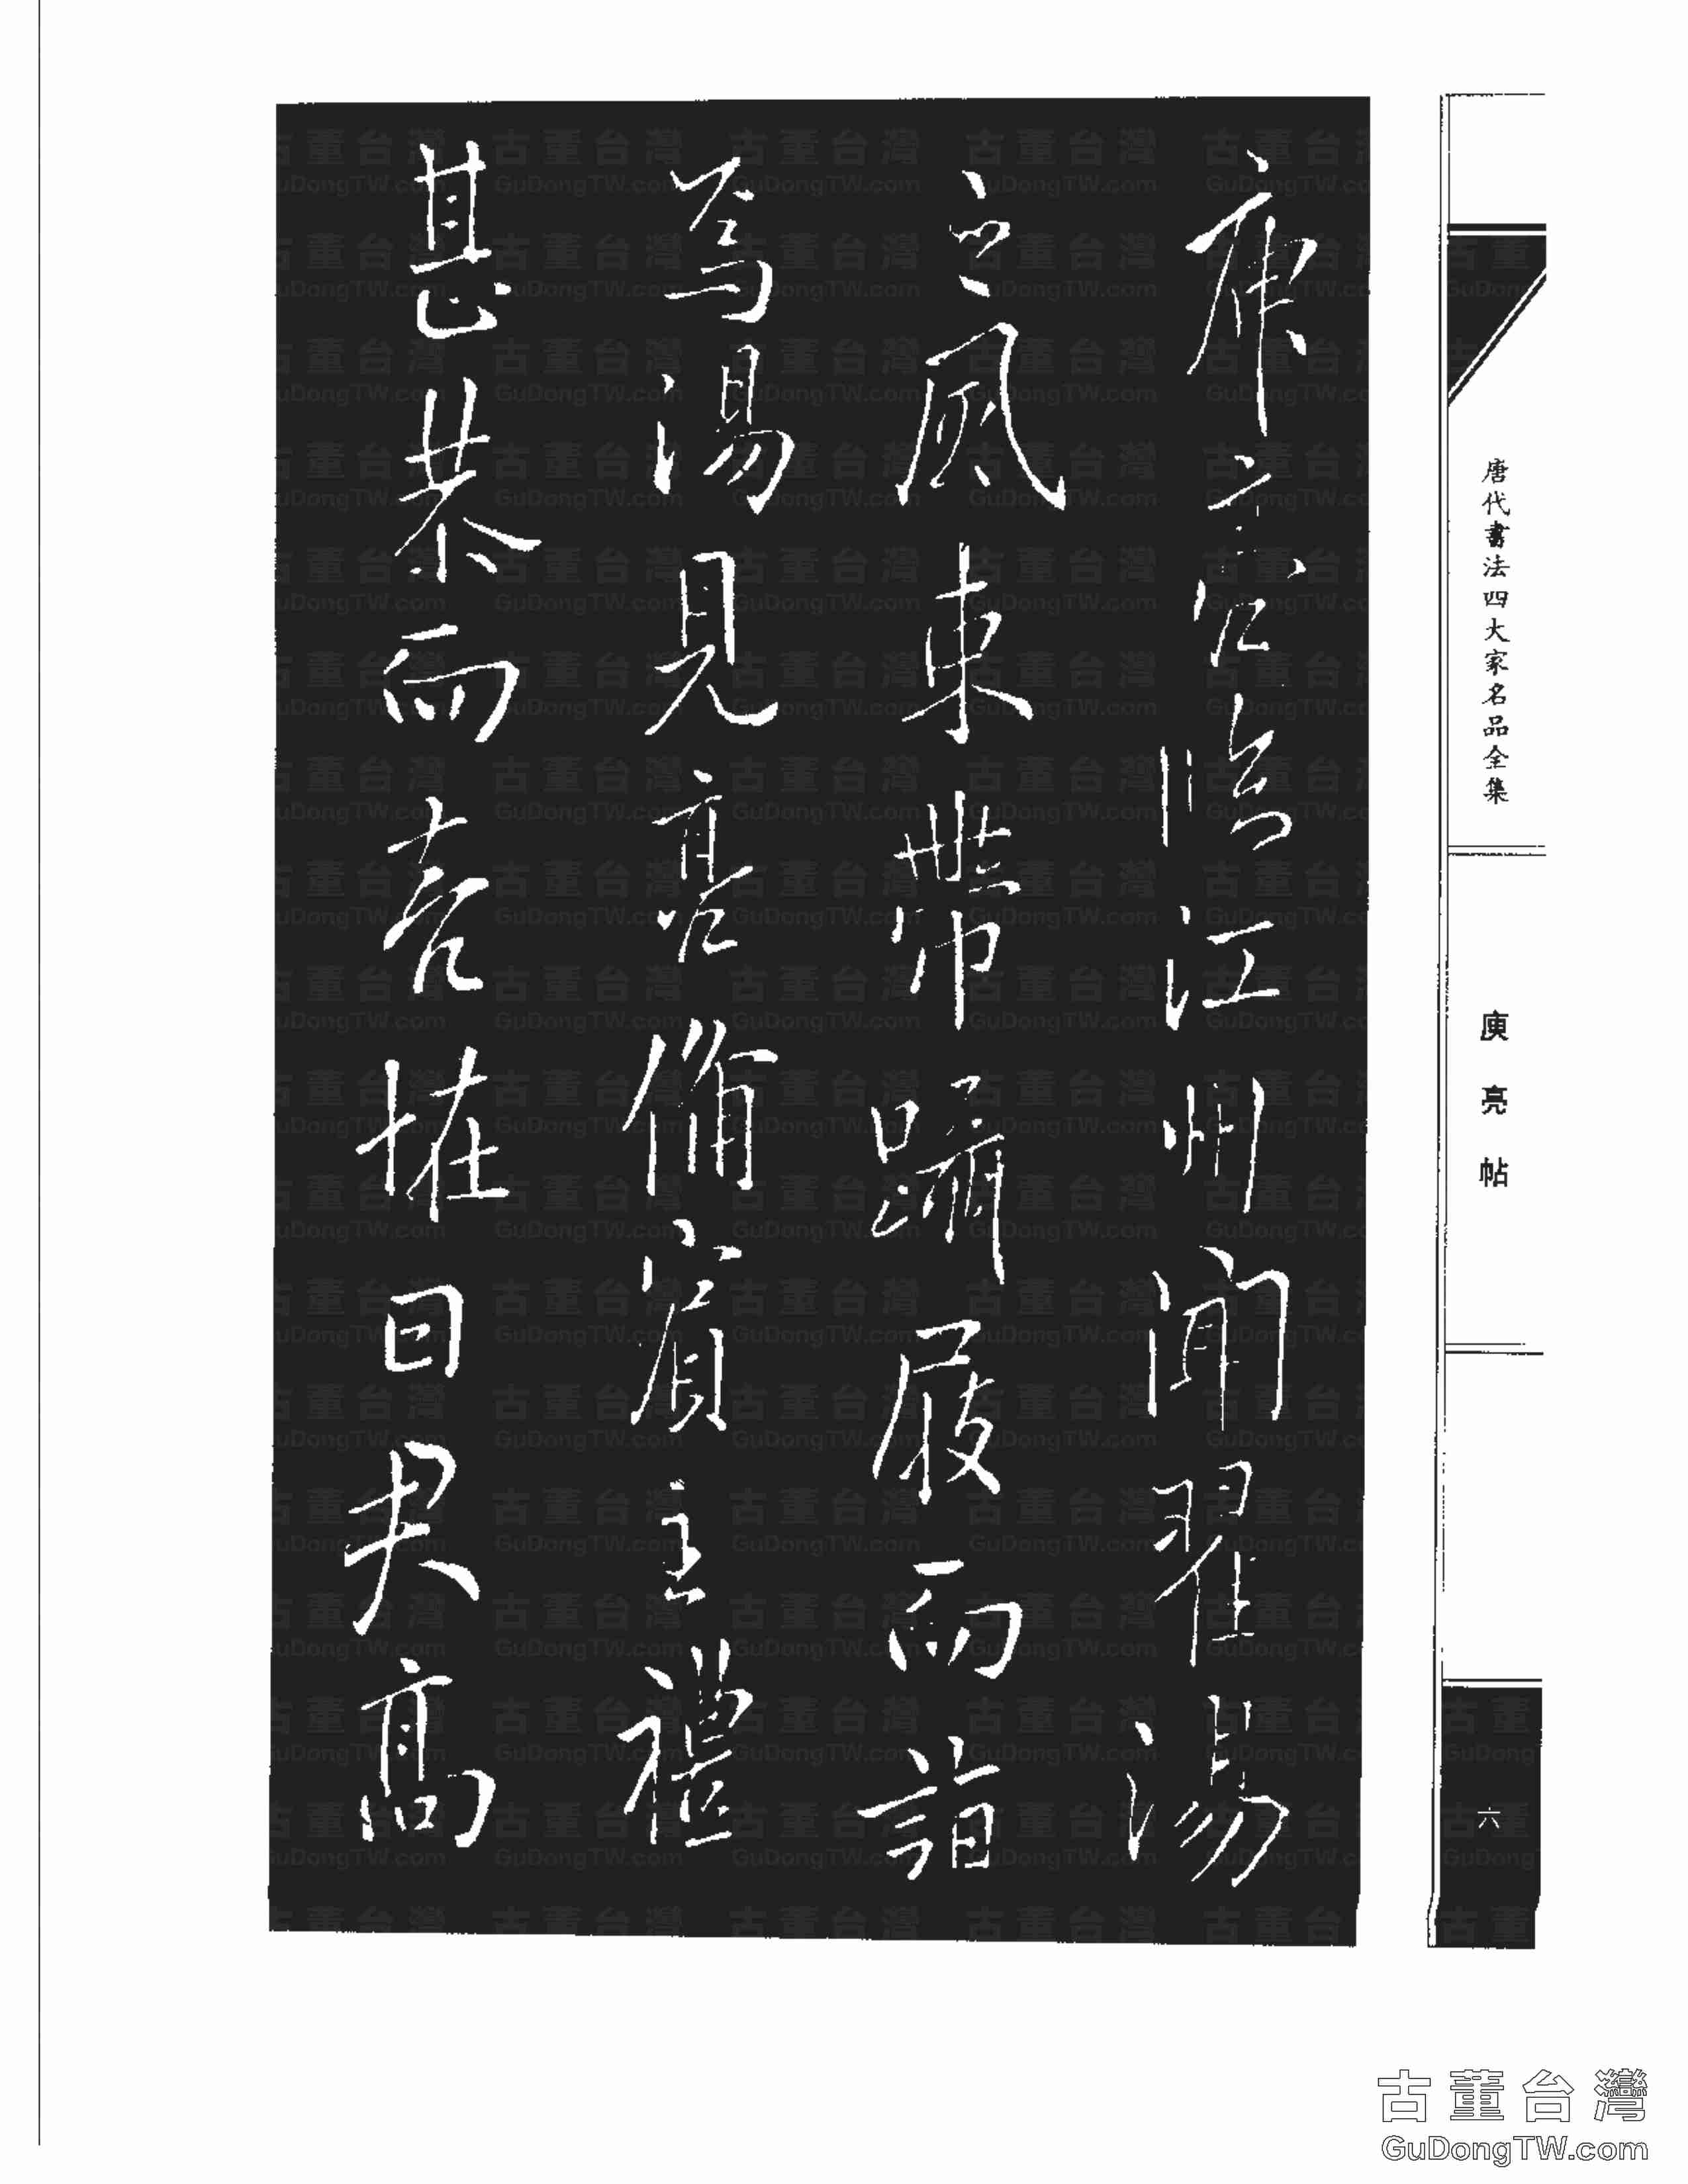 庾亮臨江州聞翟湯
之風束帶躡屐而詣
焉湯見亮備賓主禮
甚恭而亮怪曰君高
唐代書法四大家名品全集
庾亮帖
六
古董台灣
GuDongTW.com